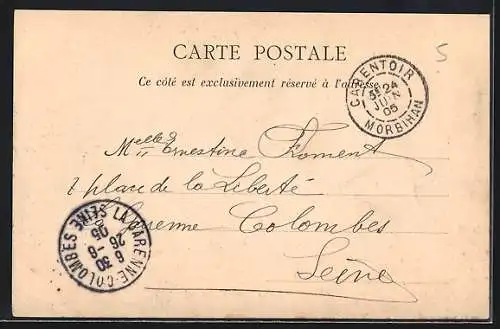 CARTE POSTALE
Ce côté est exclusivement réservé à l'adresse
5
CARENTOIR
5E 24
JUIN
05
MORBIHAN
Melle Ernestine Froment
1 place de la Liberté
Garenne Colombes
Seine
LA GARENNE-COLOMBES SEINE
6 30
26 -6
05